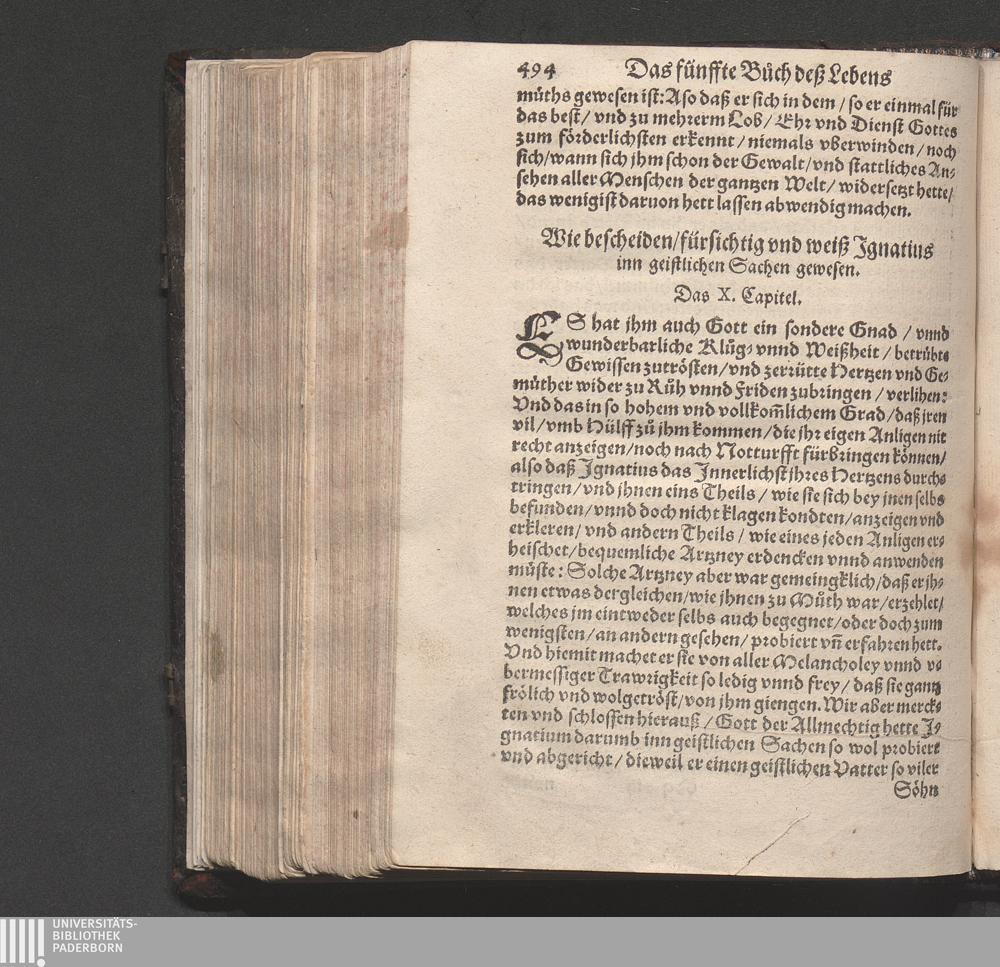 494 Das fünffte Bůch deß Lebens
můths gewesen ist: Also daß er sich in dem / so er einmal für
das best / vnd zu mehrerm Lob / Ehr vnd Dienst Gottes
zum förderlichsten erkennt / niemals vberwinden / noch
sich / wann sich jhm schon der Gewalt / vnd stattliches An⸗
sehen aller Menschen der gantzen Welt / widersetzt hette /
das wenigist daruon hett lassen abwendig machen.
Wie bescheiden / fürsichtig vnd weiß Jgnatius
inn geistlichen Sachen gewesen.
Das X. Capitel.
ES hat jhm auch Gott ein sondere Gnad / vnnd
wunderbarliche Klůg⸗ vnnd Weißheit / betrübte
Gewissen zutrösten / vnd zerrütte Hertzen vnd Ge⸗
müther wider zu Růh vnnd Friden zubringen / verlihen:
Vnd das in so hohem vnd vollkom̄lichem Grad / daß jren
vil / vmb Hülff zů jhm kommen / die jhr eigen Anligen nit
recht anzeigen / noch nach Notturfft fürbringen können /
also daß Jgnatius das Jnnerlichst jhres Hertzens durch⸗
tringen / vnd jhnen eins Theils / wie sie sich bey jnen selbs
befunden / vnnd doch nicht klagen kondten / anzeigen vnd
erkleren / vnd andern Theils / wie eines jeden Anligen er⸗
heischet / bequemliche Artzney erdencken vnnd anwenden
müste: Solche Artzney aber war gemeingklich / daß er jh⸗
nen etwas dergleichen / wie jhnen zu Můth war / erzehlet /
welches jm eintweder selbs auch begegnet / oder doch zum
wenigsten / an andern gesehen / probiert vn̄ erfahren hett.
Vnd hiemit machet er sie von aller Melancholey vnnd v⸗
bermessiger Trawrigkeit so ledig vnnd frey / daß sie gantz
frölich vnd wolgetröst / von jhm giengen. Wir aber merck⸗
ten vnd schlossen hierauß / Gott der Allmechtig hette J⸗
gnatium darumb inn geistlichen Sachen so wol probiert
vnd abgericht / dieweil er einen geistlichen Vatter so viler
Söhn
UNIVERSITÄTS-
BIBLIOTHEK
PADERBORN